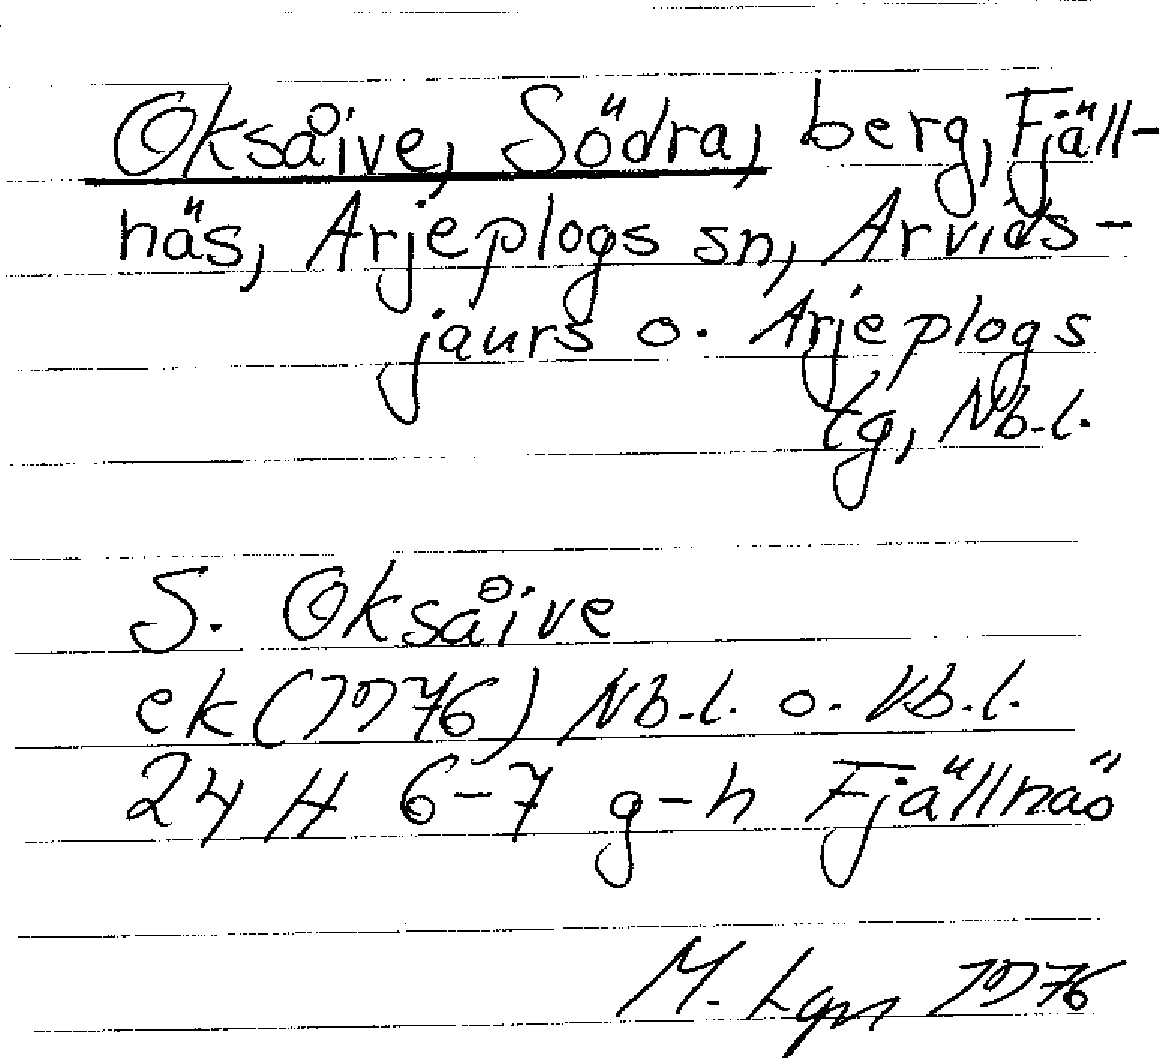 Oksåive, Södra, berg, Fjäll-
näs, Arjeplogs sn, Arvids-
jaurs o. Arjeplogs
tg, Nb.l.
S. Oksåive
ek (1976) Nb.l. o. Vb.l.
24 H 6-7 g-h Fjällnäs
M. 1976